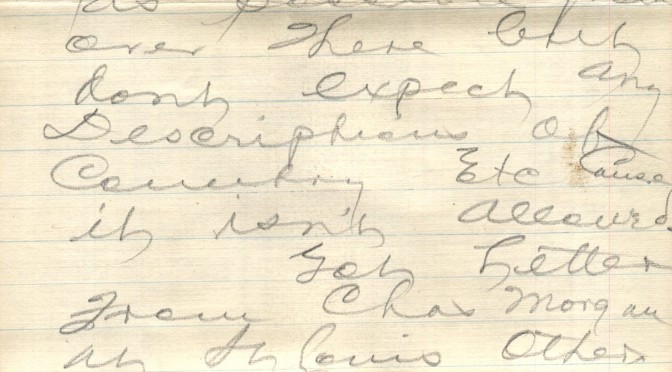 as possible from
over There but
dont expect any
Descriptions of
Country Etc Cause
it isn't Allowed.
Got Letter
From Chas Morgan
at St Louis Other